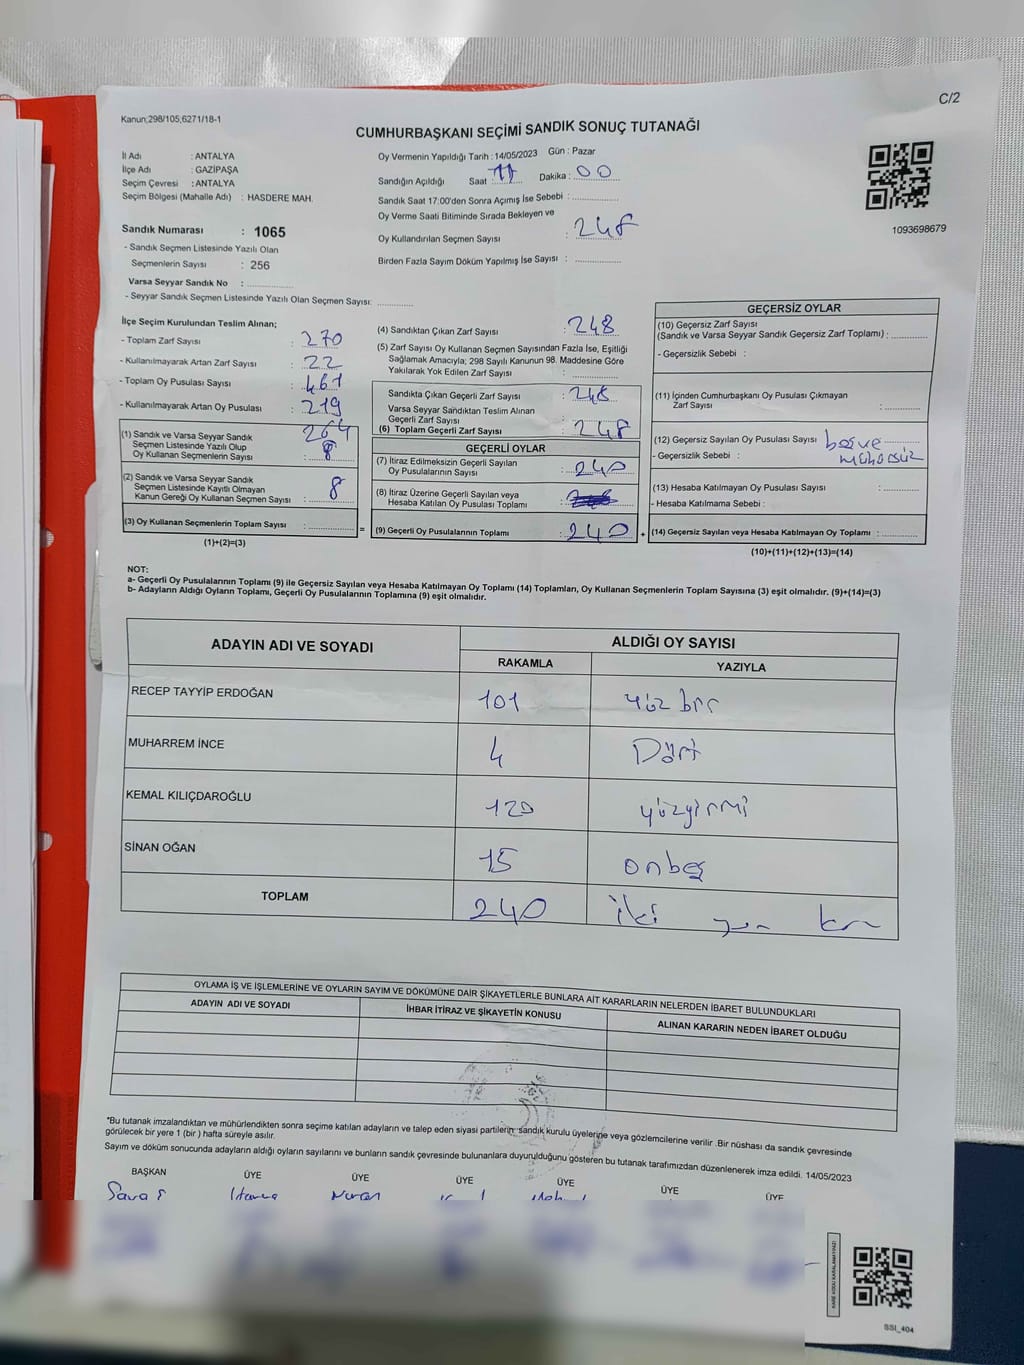 C/2
Kanun;298/105;6271/18-1
CUMHURBAŞKANI SEÇİMİ SANDIK SONUÇ TUTANAĞI
İl Adı : ANTALYA
İlçe Adı : GAZİPAŞA
Seçim Çevresi : ANTALYA
Seçim Bölgesi (Mahalle Adı) : HASDERE MAH.
Sandık Numarası : 1065
- Sandık Seçmen Listesinde Yazılı Olan
Seçmenlerin Sayısı : 256
Varsa Seyyar Sandık No :
- Seyyar Sandık Seçmen Listesinde Yazılı Olan Seçmen Sayısı:
Oy Vermenin Yapıldığı Tarih : 14/05/2023 Gün : Pazar
Sandığın Açıldığı Saat 11 Dakika : 00
Sandık Saat 17:00'den Sonra Açımış İse Sebebi :
Oy Verme Saati Bitiminde Sırada Bekleyen ve
Oy Kullandırılan Seçmen Sayısı : 248
Birden Fazla Sayım Döküm Yapılmış İse Sayısı :
1093698679
İlçe Seçim Kurulundan Teslim Alınan;
- Toplam Zarf Sayısı : 270
- Kullanılmayarak Artan Zarf Sayısı : 22
- Toplam Oy Pusulası Sayısı : 461
- Kullanılmayarak Artan Oy Pusulası : 219
(1) Sandık ve Varsa Seyyar Sandık
Seçmen Listesinde Yazılı Olup
Oy Kullanan Seçmenlerin Sayısı :
(2) Sandık ve Varsa Seyyar Sandık
Seçmen Listesinde Kayıtlı Olmayan
Kanun Gereği Oy Kullanan Seçmen Sayısı : 8
(3) Oy Kullanan Seçmenlerin Toplam Sayısı : =
(1)+(2)=(3)
(4) Sandıktan Çıkan Zarf Sayısı : 248
(5) Zarf Sayısı Oy Kullanan Seçmen Sayısından Fazla İse, Eşitliği
Sağlamak Amacıyla; 298 Sayılı Kanunun 98. Maddesine Göre
Yakılarak Yok Edilen Zarf Sayısı :
Sandıkta Çıkan Geçerli Zarf Sayısı : 248
Varsa Seyyar Sandıktan Teslim Alınan
Geçerli Zarf Sayısı :
(6) Toplam Geçerli Zarf Sayısı : 248
GEÇERLİ OYLAR
(7) İtiraz Edilmeksizin Geçerli Sayılan
Oy Pusulalarının Sayısı : 240
(8) İtiraz Üzerine Geçerli Sayılan veya
Hesaba Katılan Oy Pusulası Toplamı :
(9) Geçerli Oy Pusulalarının Toplamı : 240 +
GEÇERSİZ OYLAR
(10) Geçersiz Zarf Sayısı
(Sandık ve Varsa Seyyar Sandık Geçersiz Zarf Toplamı) :
- Geçersizlik Sebebi :
(11) İçinden Cumhurbaşkanı Oy Pusulası Çıkmayan
Zarf Sayısı :
(12) Geçersiz Sayılan Oy Pusulası Sayısı :
- Geçersizlik Sebebi :
(13) Hesaba Katılmayan Oy Pusulası Sayısı :
- Hesaba Katılmama Sebebi :
(14) Geçersiz Sayılan veya Hesaba Katılmayan Oy Toplamı :
(10)+(11)+(12)+(13)=(14)
NOT:
a- Geçerli Oy Pusulalarının Toplamı (9) ile Geçersiz Sayılan veya Hesaba Katılmayan Oy Toplamı (14) Toplamları, Oy Kullanan Seçmenlerin Toplam Sayısına (3) eşit olmalıdır. (9)+(14)=(3)
b- Adayların Aldığı Oyların Toplamı, Geçerli Oy Pusulalarının Toplamına (9) eşit olmalıdır.
ADAYIN ADI VE SOYADI
ALDIĞI OY SAYISI
RAKAMLA YAZIYLA
RECEP TAYYİP ERDOĞAN 101 yüz bir
MUHARREM İNCE 4 Dört
KEMAL KILIÇDAROĞLU 120 yüzyirmi
SİNAN OĞAN 15 onbeş
TOPLAM 240 iki
OYLAMA İŞ VE İŞLEMLERİNE VE OYLARIN SAYIM VE DÖKÜMÜNE DAİR ŞİKAYETLERLE BUNLARA AİT KARARLARIN NELERDEN İBARET BULUNDUKLARI
ADAYIN ADI VE SOYADI İHBAR İTİRAZ VE ŞİKAYETİN KONUSU ALINAN KARARIN NEDEN İBARET OLDUĞU
*Bu tutanak imzalandıktan ve mühürlendikten sonra seçime katılan adayların ve talep eden siyasi partilerin, sandık kurulu üyelerine veya gözlemcilerine verilir .Bir nüshası da sandık çevresinde
görülecek bir yere 1 (bir ) hafta süreyle asılır.
Sayım ve döküm sonucunda adayların aldığı oyların sayılarını ve bunların sandık çevresinde bulunanlara duyurulduğunu gösteren bu tutanak tarafımızdan düzenlenerek imza edildi. 14/05/2023
BAŞKAN ÜYE ÜYE ÜYE ÜYE ÜYE ÜYE
Nuran
SSI_404